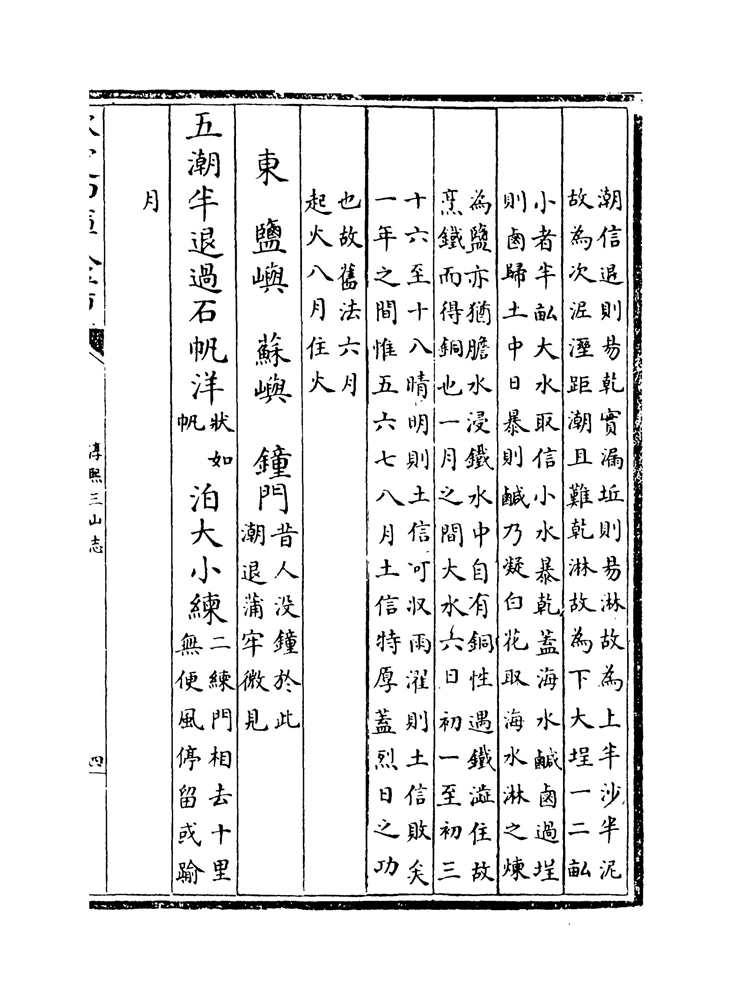 潮信退則易乾實漏坵則易淋故為上半沙半泥
故為次泥溼距潮且難乾淋故為下大埕一二畝
小者半畝大水取信小水暴乾蓋海水鹹鹵過埕
則鹵歸土中日暴則鹹乃凝白花取海水淋之煉
為鹽亦猶膽水浸鐵水中自有銅性遇鐵澁住故
熏鐵而得銅也一月之間大水六日初一至初三
十六至十八晴明則土信可収雨濯則土信敗矣
一年之間惟五六七八月土信特厚蓋烈日之功
也故舊法六月
起火八月住火
東鹽嶼 蘇嶼 鐘門昔人没鐘於此
潮退蒲牢微見
五潮半退過石帆洋狀如
帆泊大小練二練門相去十里
無便風停留或踰
月
淳熙三山志
四